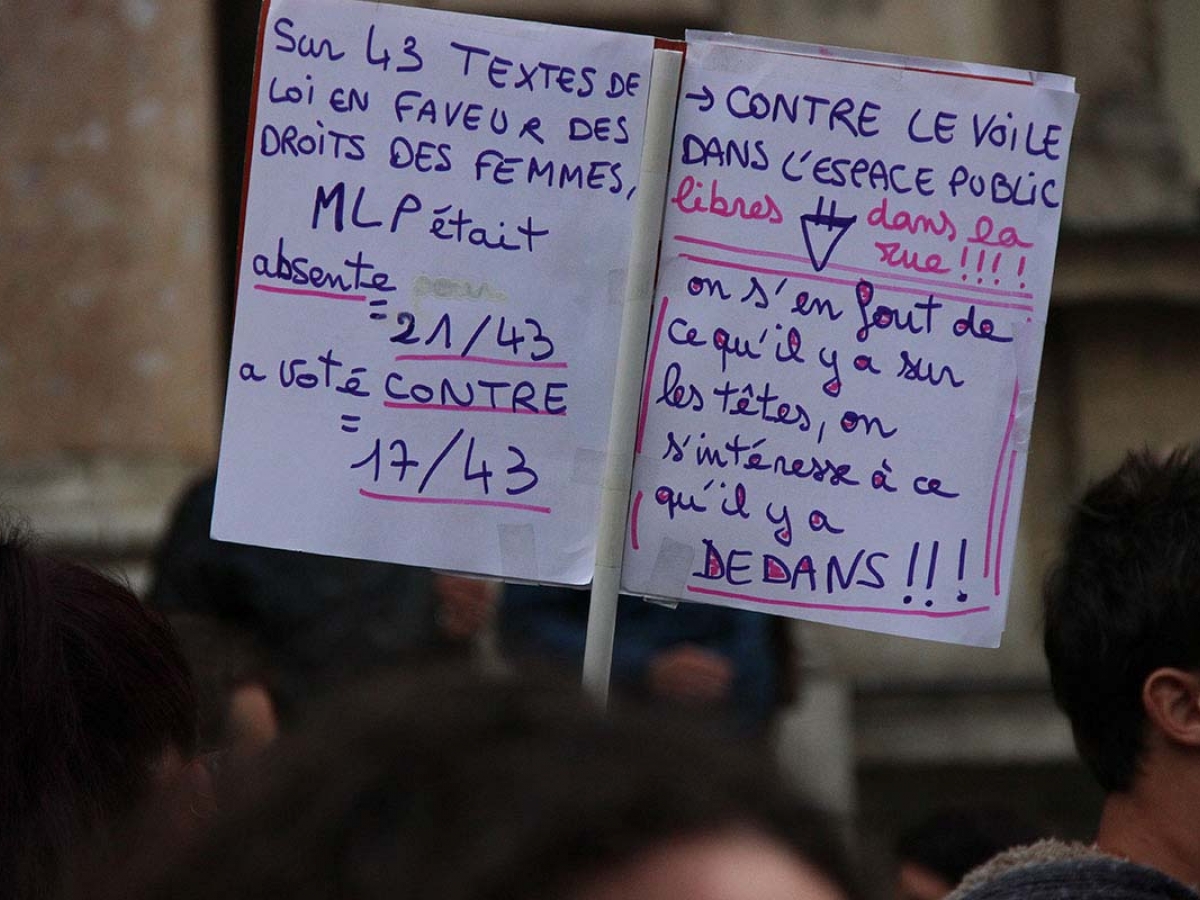 Sur 43 TEXTES DE
LOI EN FAVEUR DES
DROITS DES FEMMES,
MLP était
absente pour
= 21/43
a voté CONTRE
= 17/43
→ CONTRE LE VOILE
DANS L'ESPACE PUBLIC
libres dans la
rue !!!!
on s'en fout de
ce qu'il y a sur
les têtes, on
s'intéresse à ce
qu'il y a
DEDANS !!!